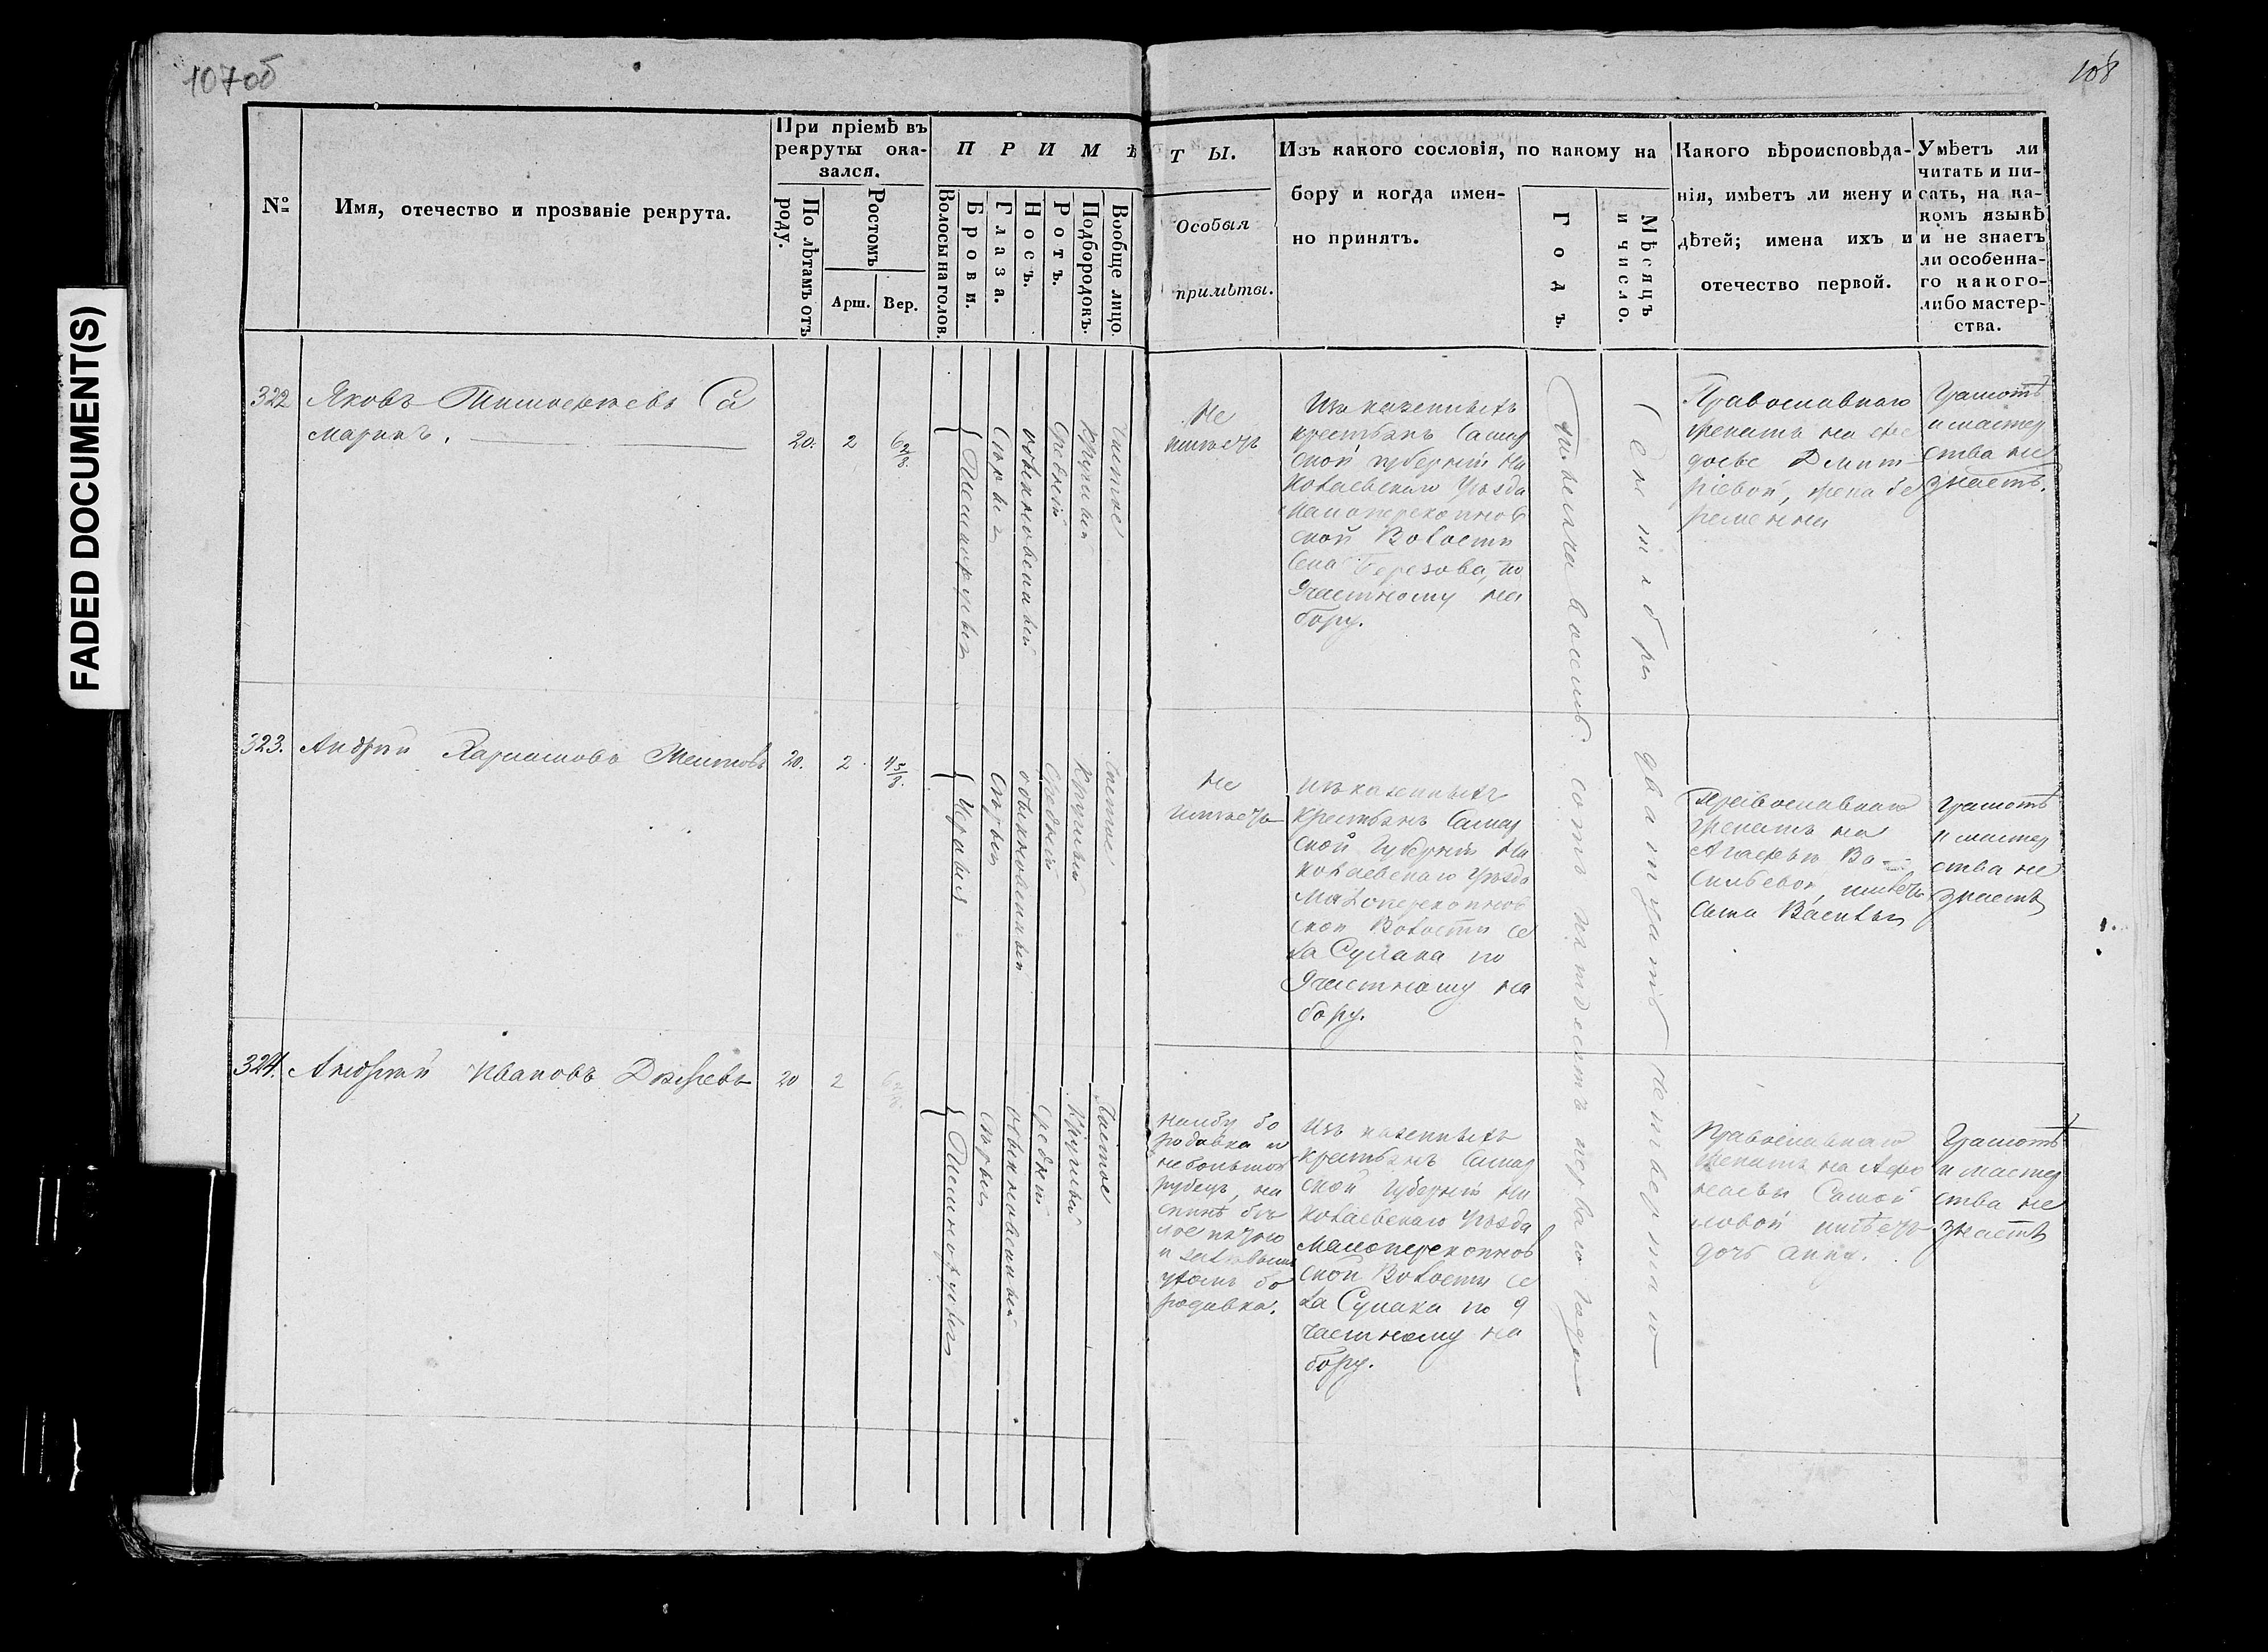 107об
108
FADED DOCUMENT(S)
№
Имя, отечество и прозваніе рекрута.
При пріемѣ въ
рекруты ока-
зался.
По лѣтамъ отъ
роду.
Ростомъ
Арш.
Вер.
ПРИМѢ
Волосы на голов.
Брови.
Глаза.
Носъ.
Ротъ.
Подбородокъ.
Вообще лицо.
ТЫ.
Особыя
примѣты.
Изъ какого сословія, по какому на
бору и когда имен-
но принятъ.
Годъ.
Мѣсяцъ
и число.
Какого вѣроисповѣда-
нія, имѣетъ ли жену и
дѣтей; имена ихъ и
отечество первой.
Умѣетъ ли
читать и пи-
сать, на ка-
комъ языкѣ
и не знаетъ
ли особенна-
го какого-
либо мастер-
ства.
322
Яковъ Са
маринъ.
20.
2
6 2/8.
Темнорусыя
Сѣрыя
обыкновенный
Средній
Круглый
Чистое
Не
имѣетъ
Изъ казенныхъ
крестьянъ Самар
ской губерніи Ни
колаевскаго Уѣзда
Малоперекопнов
ской Волости
Села Березова, по
9 частному на
бору.
Тысяча восемь сотъ пятдесятъ перваго года
Сентября двадцать четвертаго
Православнаго
женатъ на Фе
досье Дмит
ріевой, жена бе
ременна
Грамотѣ
и мастер
ства не
знаетъ.
323.
Андрей
20.
2
4 5/8.
Черныя
Сѣрыя
обыкновенный
Средній
Круглый
Чистое
Не
имѣетъ
Изъ казенныхъ
Крестьянъ Самар
ской Губерніи Ни
колаевскаго Уѣзда
Малоперекопнов
ской Волости Се
ла Сулака по
9 частному на
бору.
Православнаго
женатъ на
Агафьи Ва
сильевой, имѣетъ
сына Василья
Грамотѣ
и мастер
ства не
знаетъ
324.
Андрей Ивановъ
20
2
Темнорусыя
Сѣрыя
обыкновенный
средній
Круглый
Чистое
на лбу бо
родавка и
небольшой
рубецъ, на
спинѣ бѣ
лое пятно
бо
родавка.
Изъ казенныхъ
крестьянъ Самар
ской Губерніи Ни
колаевскаго Уѣзда
Малоперекопнов
ской Волости Се
ла Сулака по 9
частному на
бору.
Православнаго
женатъ на Афо
насьи
имѣетъ
дочь Анна.
Грамотѣ
и мастер
ства не
знаетъ